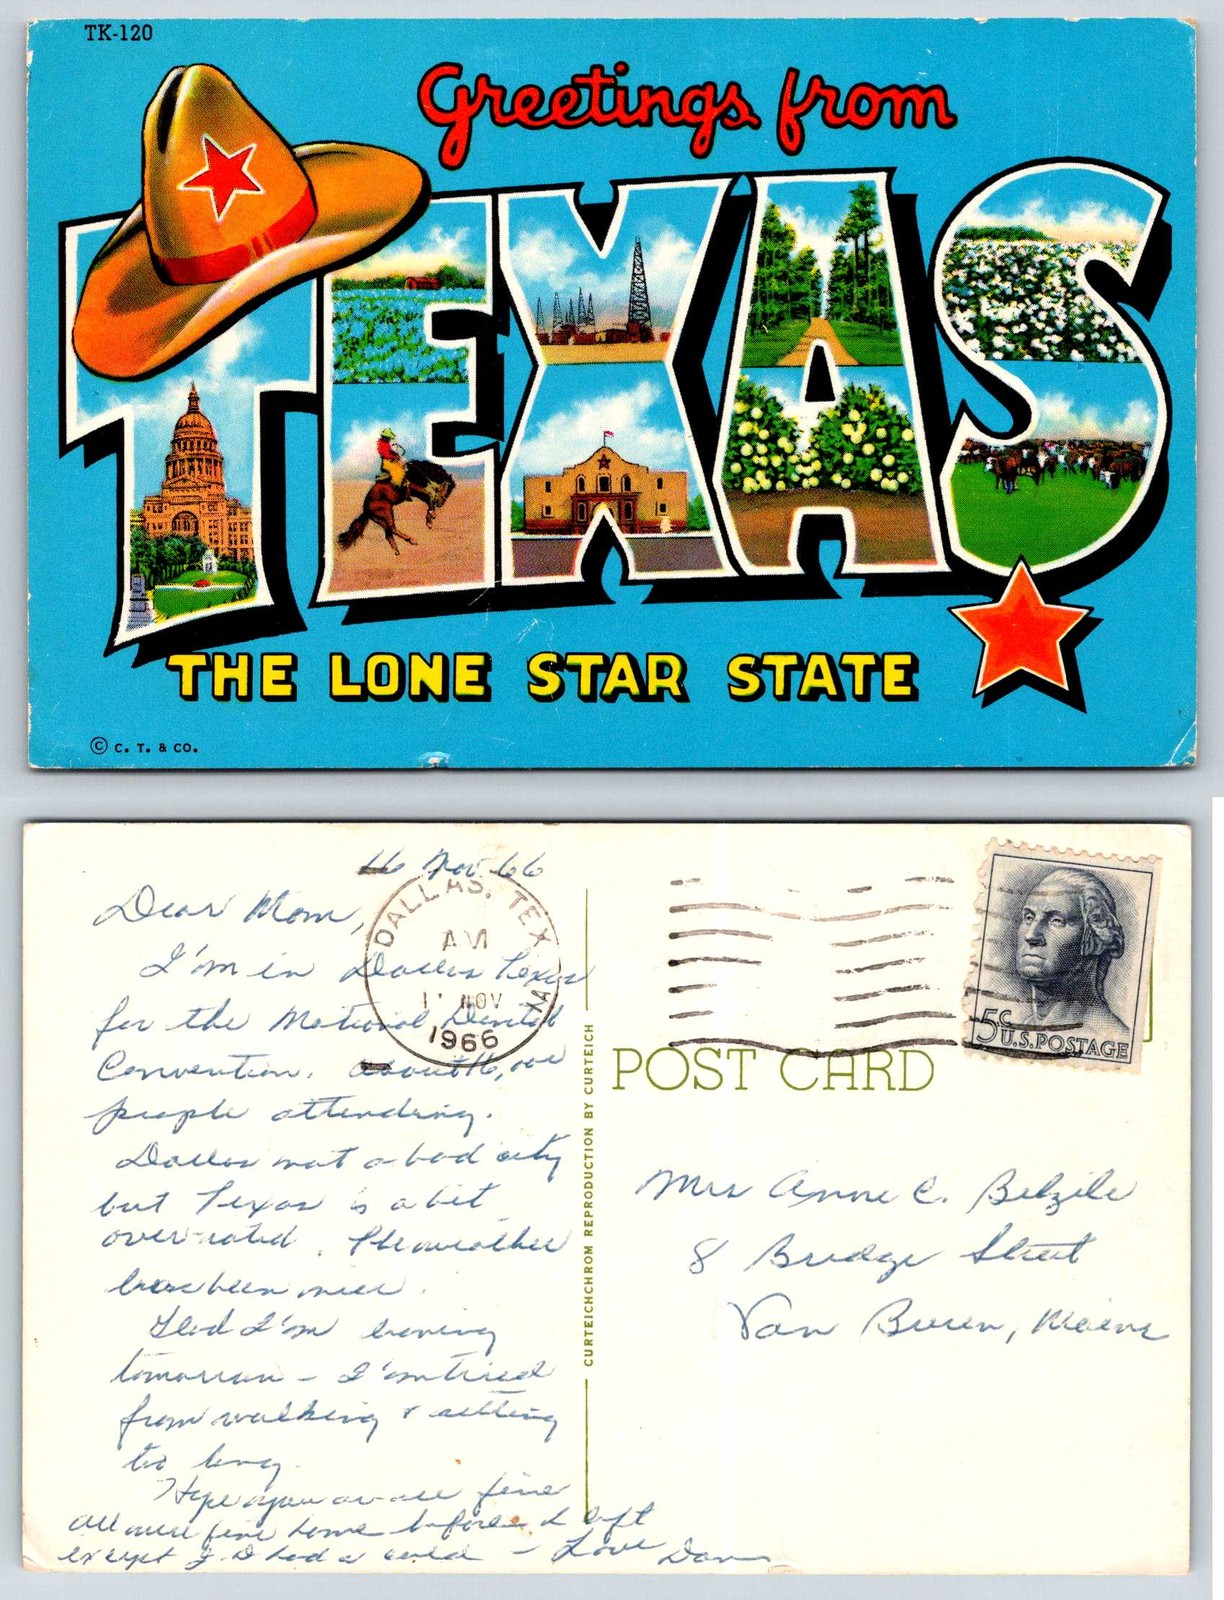 TK-120
Greetings from
TEXAS
THE LONE STAR STATE
© C. T. & CO.
16 Nov 66
Dear Mom,
I'm in Dallas Texas
for the National Dental
Convention. about 16,000
people attending.
Dallas not a bad city
but Texas is a bit
over-rated. The weather
has been nice.
Glad I'm leaving
tomorrow - I'm tired
from walking & sitting
too long.
Hope you are all fine
all were fine home before I left
except J.D had a cold - Love Dan
DALLAS, TEX
AM
NOV
1966
CURTEICHCHROM REPRODUCTION BY CURTEICH
POST CARD
5c
U.S. POSTAGE
Mrs Anne C. Belzile
8 Bridge Street
Van Buren, Maine